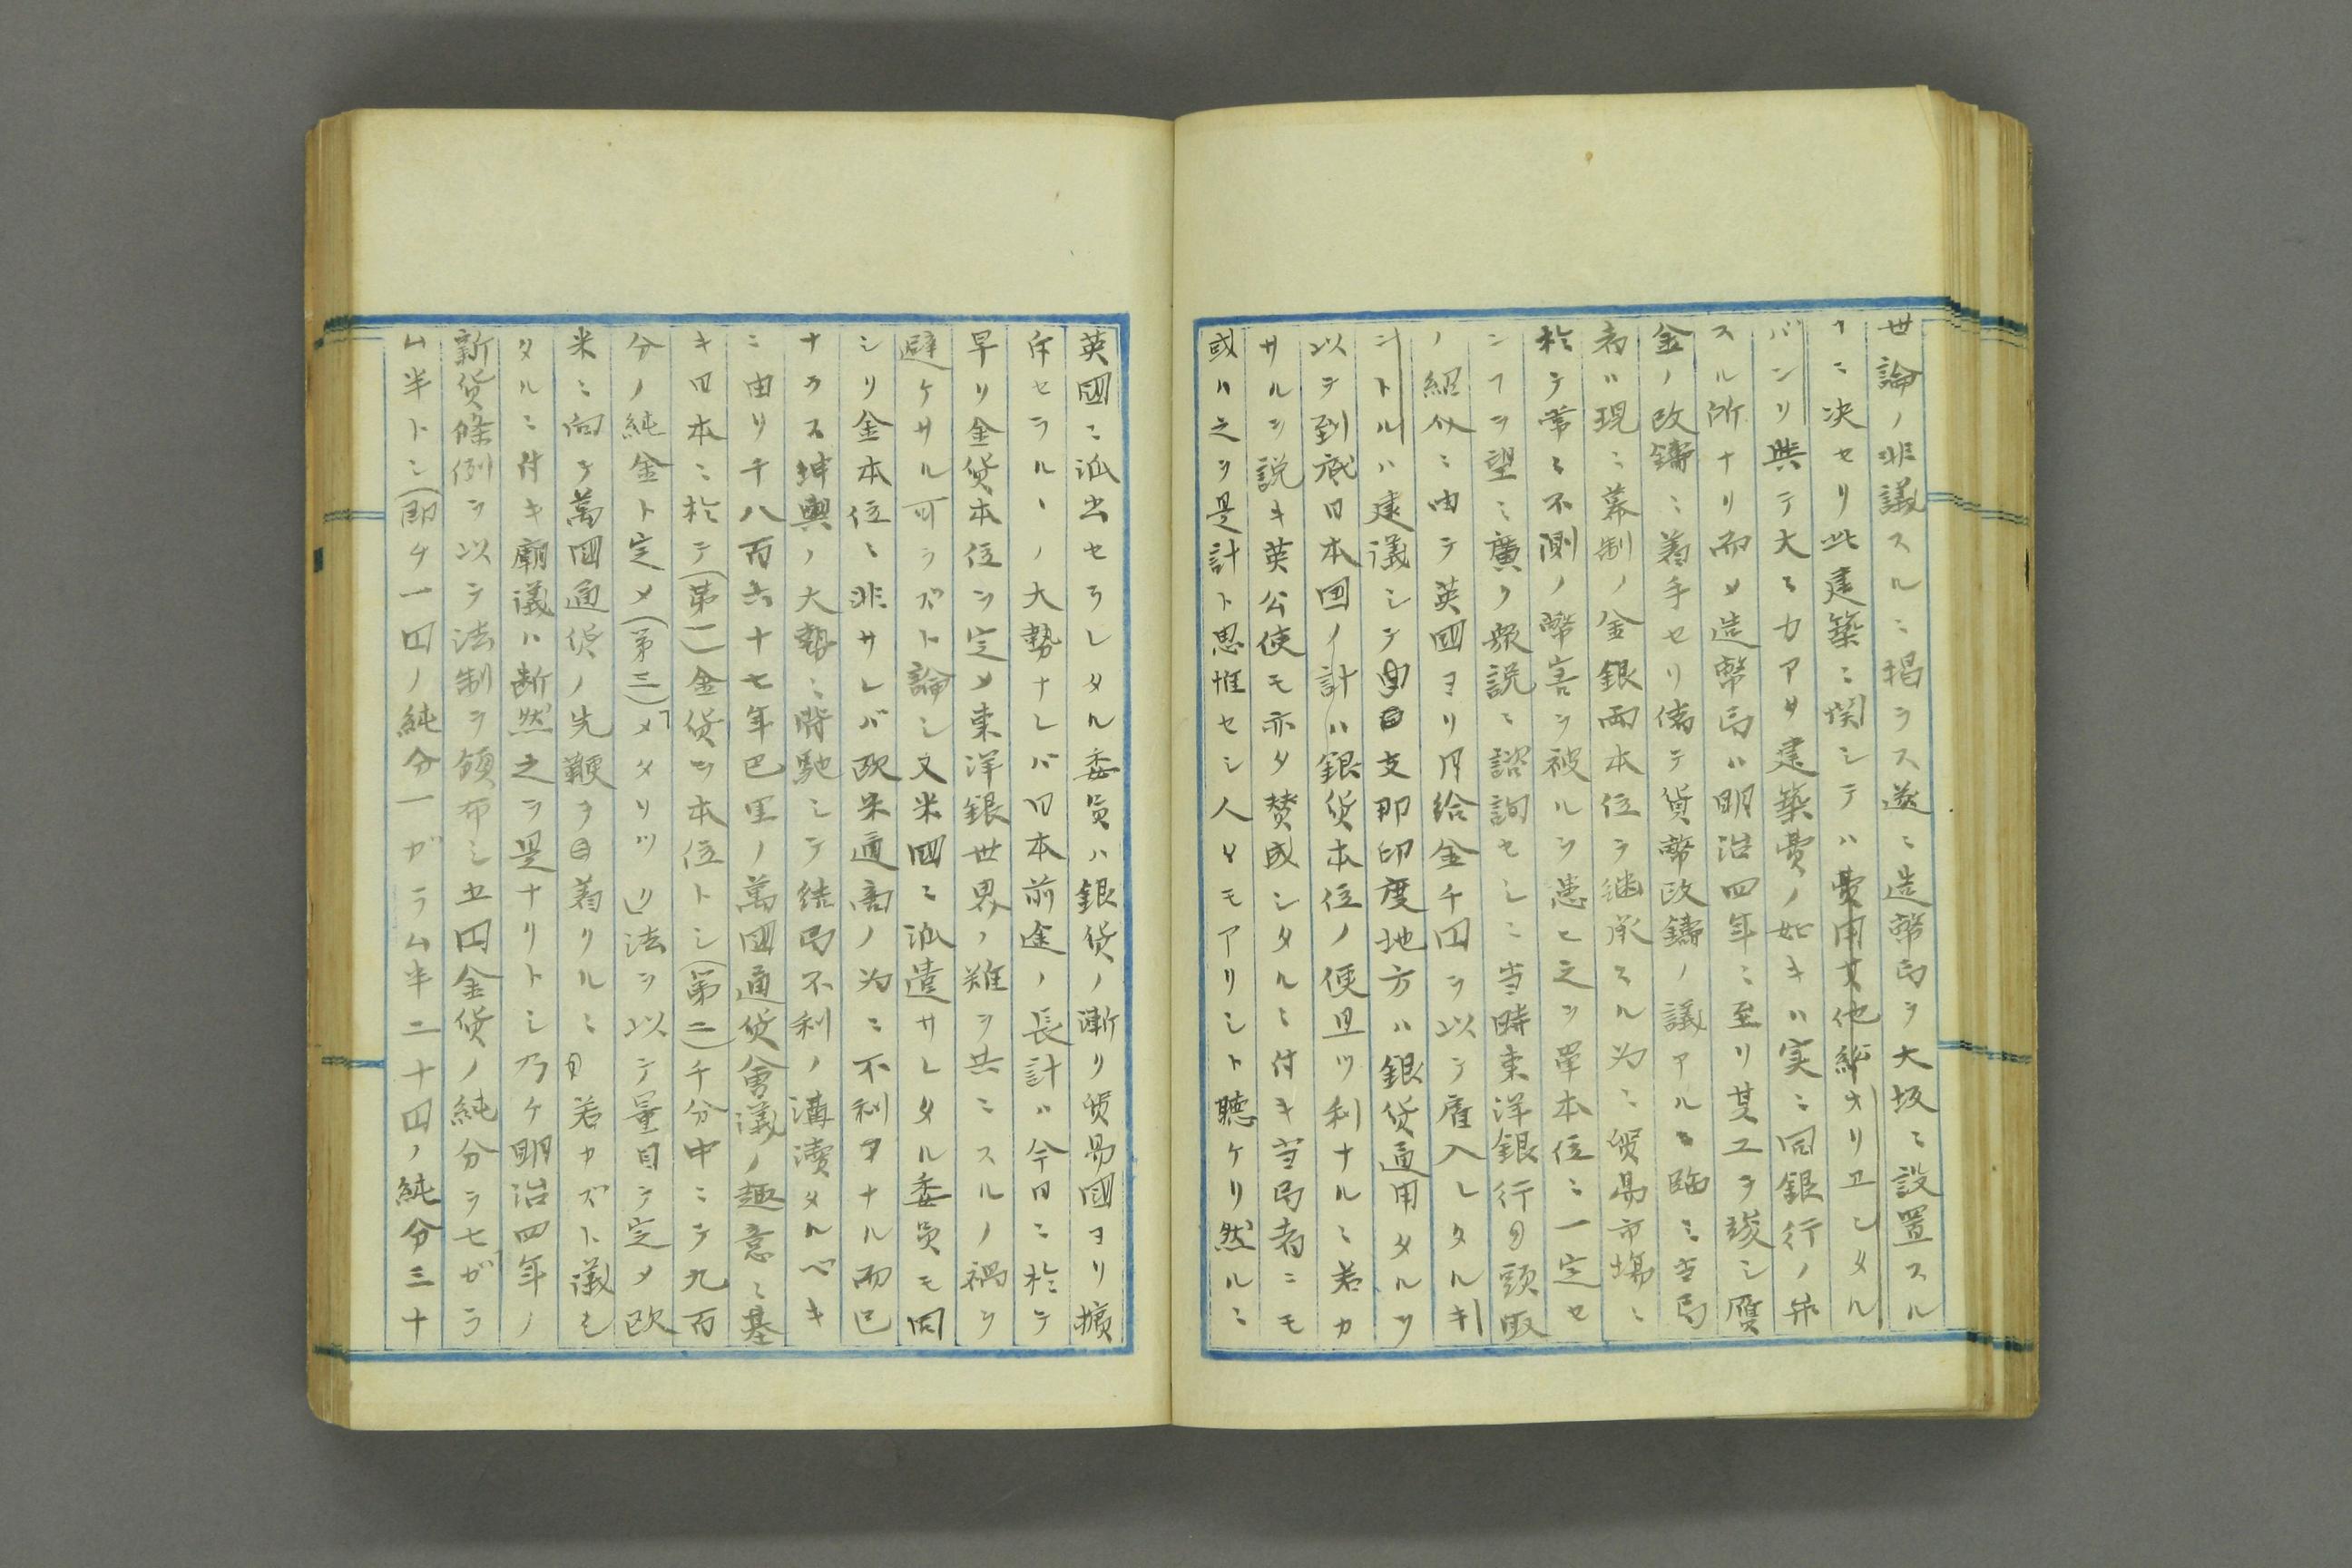 世論ノ非議スルニ拘ラス遂ニ造幣局ヲ大坂ニ設置スル
ナニ決セリ此建築ニ関シテハ費用其他
バンリ與テ大ミカアサ建築費ノ如キハ実ニ同銀行ノ弁
スル所ナリ而メ造幣局ハ明治四年ニ至リ其工ヲ竣シ贋
金ノ改鑄ニ着手セリ偖テ貨幣改鑄ノ議アルニ臨ミ当局
者ハ現ニ幕制ノ金銀両本位ヲ継承スル為ニ貿易市場ニ
於テ常ニ不測ノ弊害ヲ被ルヲ患ヒ之ヲ単本位ニ一定セ
ンヿヲ望ミ廣ク衆説ニ諮詢セシニ当時東洋銀行ノ頭取
ノ紹介ニ由テ英國ヨリ月給金千円ヲ以テ雇入レタルキ
ントルハ建議シテ曰支那印度地方ハ銀貨通用タルヲ
以テ到底日本国ノ計ハ銀貨本位ノ便且ツ利ナルニ若カ
サルヲ説キ英公使モ亦タ賛成シタルニ付キ当局者ニモ
或ハ之ヲ是計ト思惟セシ人々モアリシト聴ケリ然ルニ
英國ニ派出セラレタル委員ハ銀貨ノ漸リ貿易國ヨリ擯
斥セラルヽノ大勢ナレバ日本前途ノ長計ハ今日ニ於テ
早リ金貨本位ヲ定メ東洋銀世界ノ難ヲ共ニスルノ禍ヲ
避ケサル可ラズト論シ又米國ニ派遣サレタル委員モ同
シリ金本位ニ非サレバ欧米通商ノ為ニ不利ナル而已
ナラス坤輿ノ大勢ニ背馳シテ結局不利ノ溝瀆タルベキ
ニ由リ千八百六十七年巴里ノ萬國通貨會議ノ趣意ニ基
キ日本ニ於テ(第一)金貨ヲ本位トシ(第二)千分中ニテ九百
分ノ純金ト定メ(第三)メタリツリ法ヲ以テ量目ヲ定メ欧
米ニ向テ萬國通貨ノ先鞭ヲ着リルニ若カズト議シ
タルニ付キ廟議ハ断然之ヲ是ナリトシ乃ケ明治四年ノ
新貨條例ヲ以テ法制ヲ頒布シ五円金貨ノ純分ヲ七ガラ
ム半トシ(即チ一円ノ純分一ガラム半二十円ノ純分三十